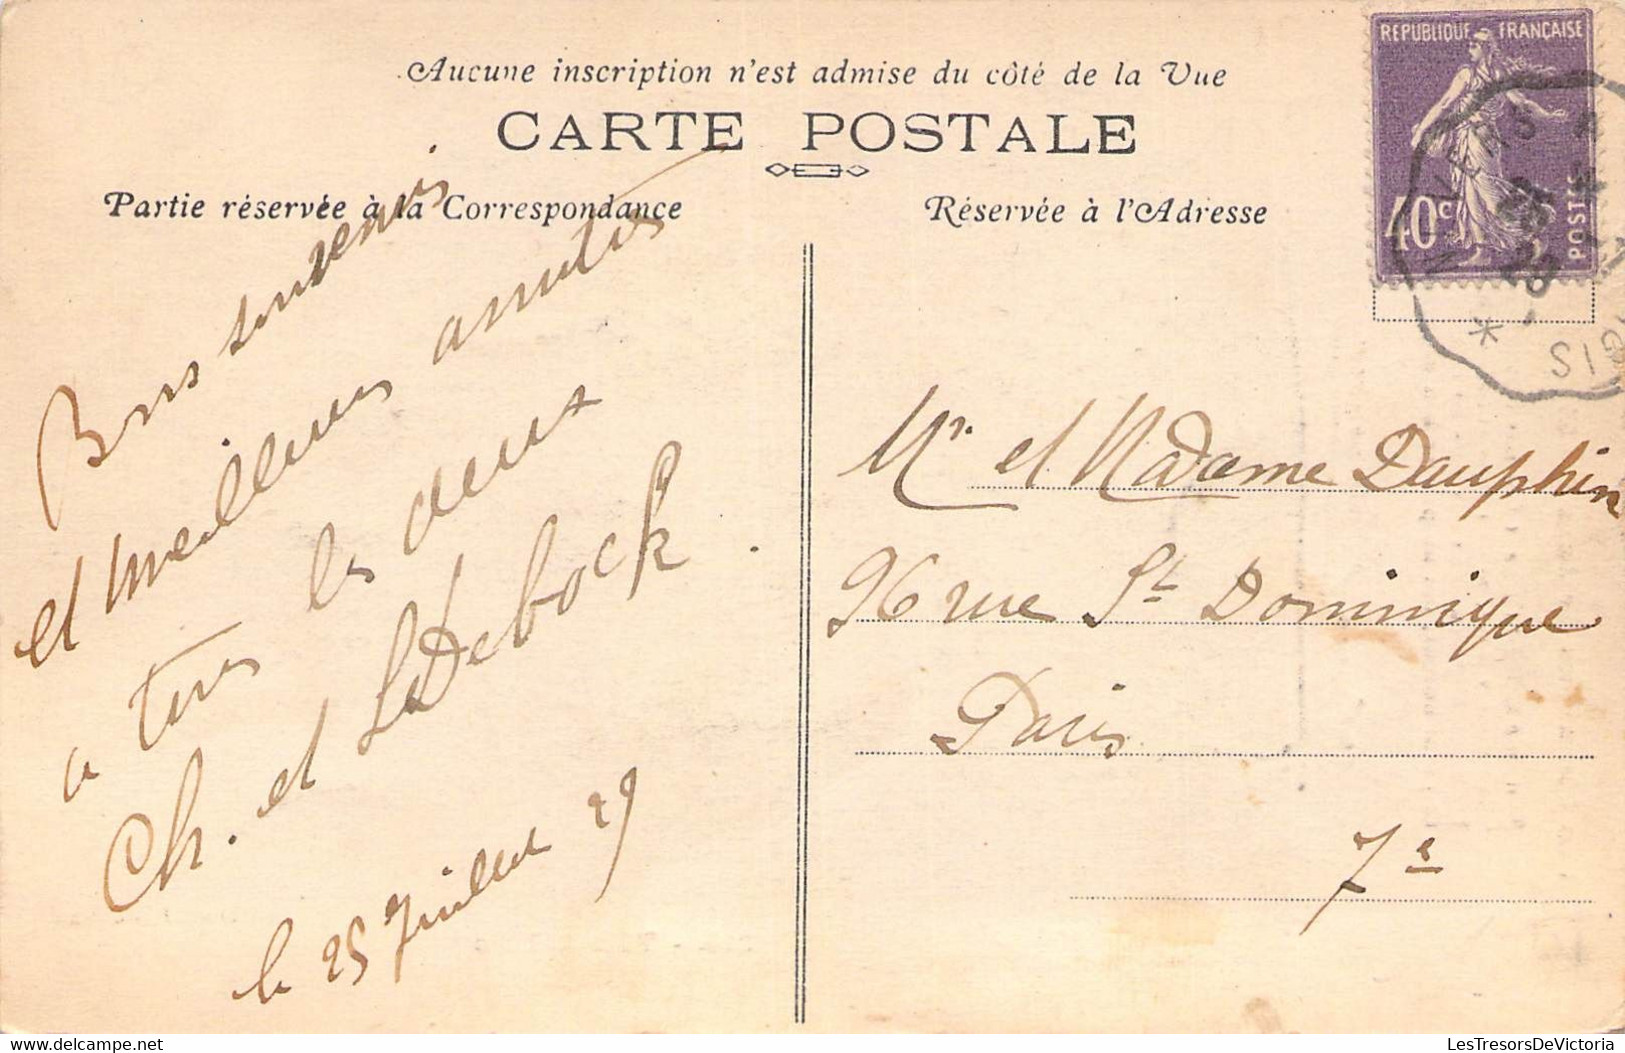 Aucune inscription n'est admise du côté de la Vue
CARTE POSTALE
Partie réservée à la Correspondance
Réservée à l'Adresse
REPUBLIQUE FRANÇAISE
40c
POSTES
Bons souvenirs
et meilleures amitiés
à tous les deux
Ch. et L Debock.
le 25 Juillet 29
Mr et Madame Dauphin
96 rue St Dominique
Paris
7e
delcampe.net
LesTresorsDeVictoria